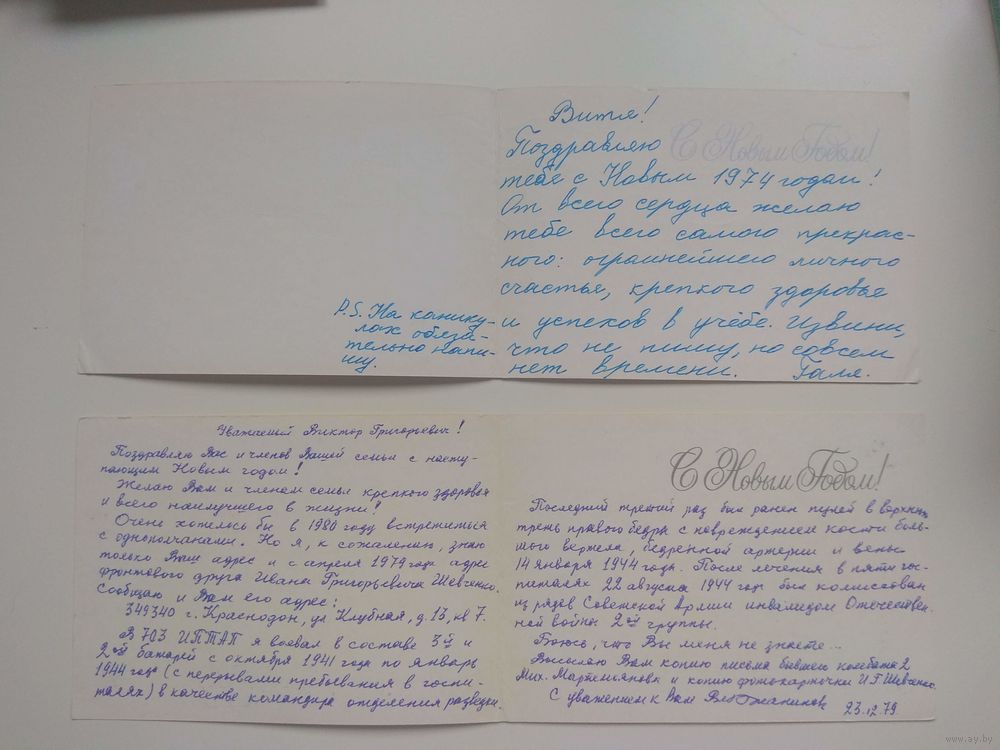 Витя!
С Новым Годом!
Поздравляю
тебя с Новым 1974 годом!
От всего сердца желаю
тебе всего самого прекрас-
ного: огромнейшего личного
счастья, крепкого здоровья
и успехов в учёбе. Извини,
что не пишу, но совсем
нет времени. Галя.
P.S. На канику-
лах обяза-
тельно напи-
шу.
Уважаемый Виктор Григорьевич!
Поздравляю Вас и членов Вашей семьи с насту-
пающим Новым годом!
Желаю Вам и членам семьи крепкого здоровья
и всего наилучшего в жизни!
Очень хотелось бы в 1980 году встретиться
с однополчанами. Но я, к сожалению, знаю
только Ваш адрес и с апреля 1979 года адрес
фронтового друга Ивана Григорьевича Шевченко.
Сообщаю и Вам его адрес:
349340 г. Краснодон, ул Клубная, д. 13, кв 7.
В 703 ИПТАП я воевал в составе 3й и
2ой батарей с октября 1941 года по январь
1944 года (с перерывами пребывания в госпи-
талях) в качестве командира отделения разведки.
С Новым Годом!
Последний третий раз был ранен пулей в верхнюю
треть правого бедра с повреждением кости боль-
шого вертела, бедренной артерии и вены
14 января 1944 года. После лечения в пяти гос-
питалях 22 августа 1944 года был комиссован
из рядов Советской Армии инвалидом Отечествен.
ной войны 2ой группы.
Боюсь, что Вы меня не знаете...
Высылаю Вам копию письма бывшего комбата 2
Мих. Мартемьянова и копию фотокарточки И.Г. Шевченко.
С уважением к Вам 23.12.79.
www.ay.by